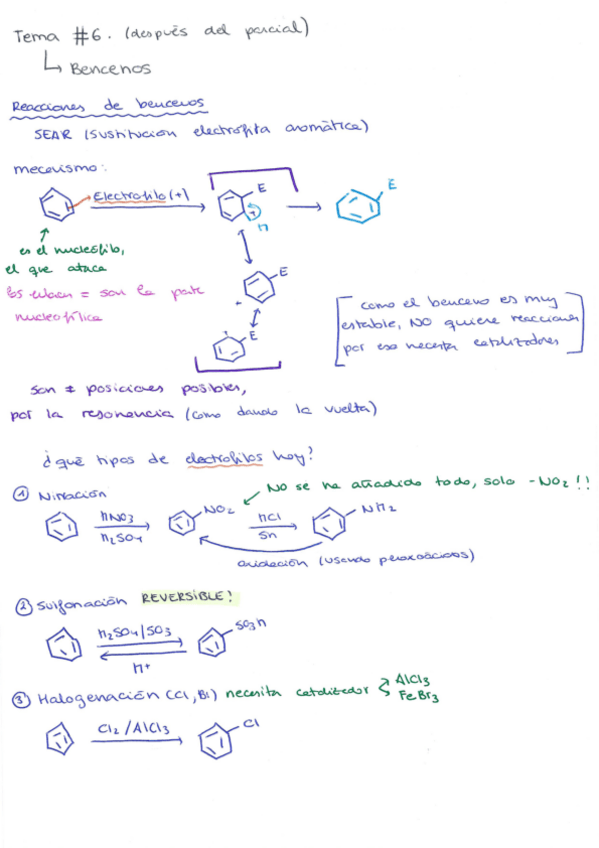 Tema #6. (después del parcial)
↳ Bencenos
Reacciones de bencenos
SEAR (sustitución electrófila aromática)
mecanismo:
Electrófilo (+)
E
+
H
E
es el nucleófilo,
el que ataca
E
+
nucleofílica
+
E
como el benceno es muy
estable, NO quiere reaccionar
por eso necesita catalizadores
son ≠ posiciones posibles,
por la resonancia (como dando la vuelta)
¿qué tipos de electrófilos hay?
NO se ha añadido todo, solo -NO2!!
① Nitración
HNO3
H2SO4
NO2
HCl
Sn
NH2
oxidación (usando peroxoácidos)
② Sulfonación REVERSIBLE!
H2SO4/SO3
H+
SO3H
③ Halogenación (Cl, Br) necesita catalizador
AlCl3
FeBr3
Cl2/AlCl3
Cl